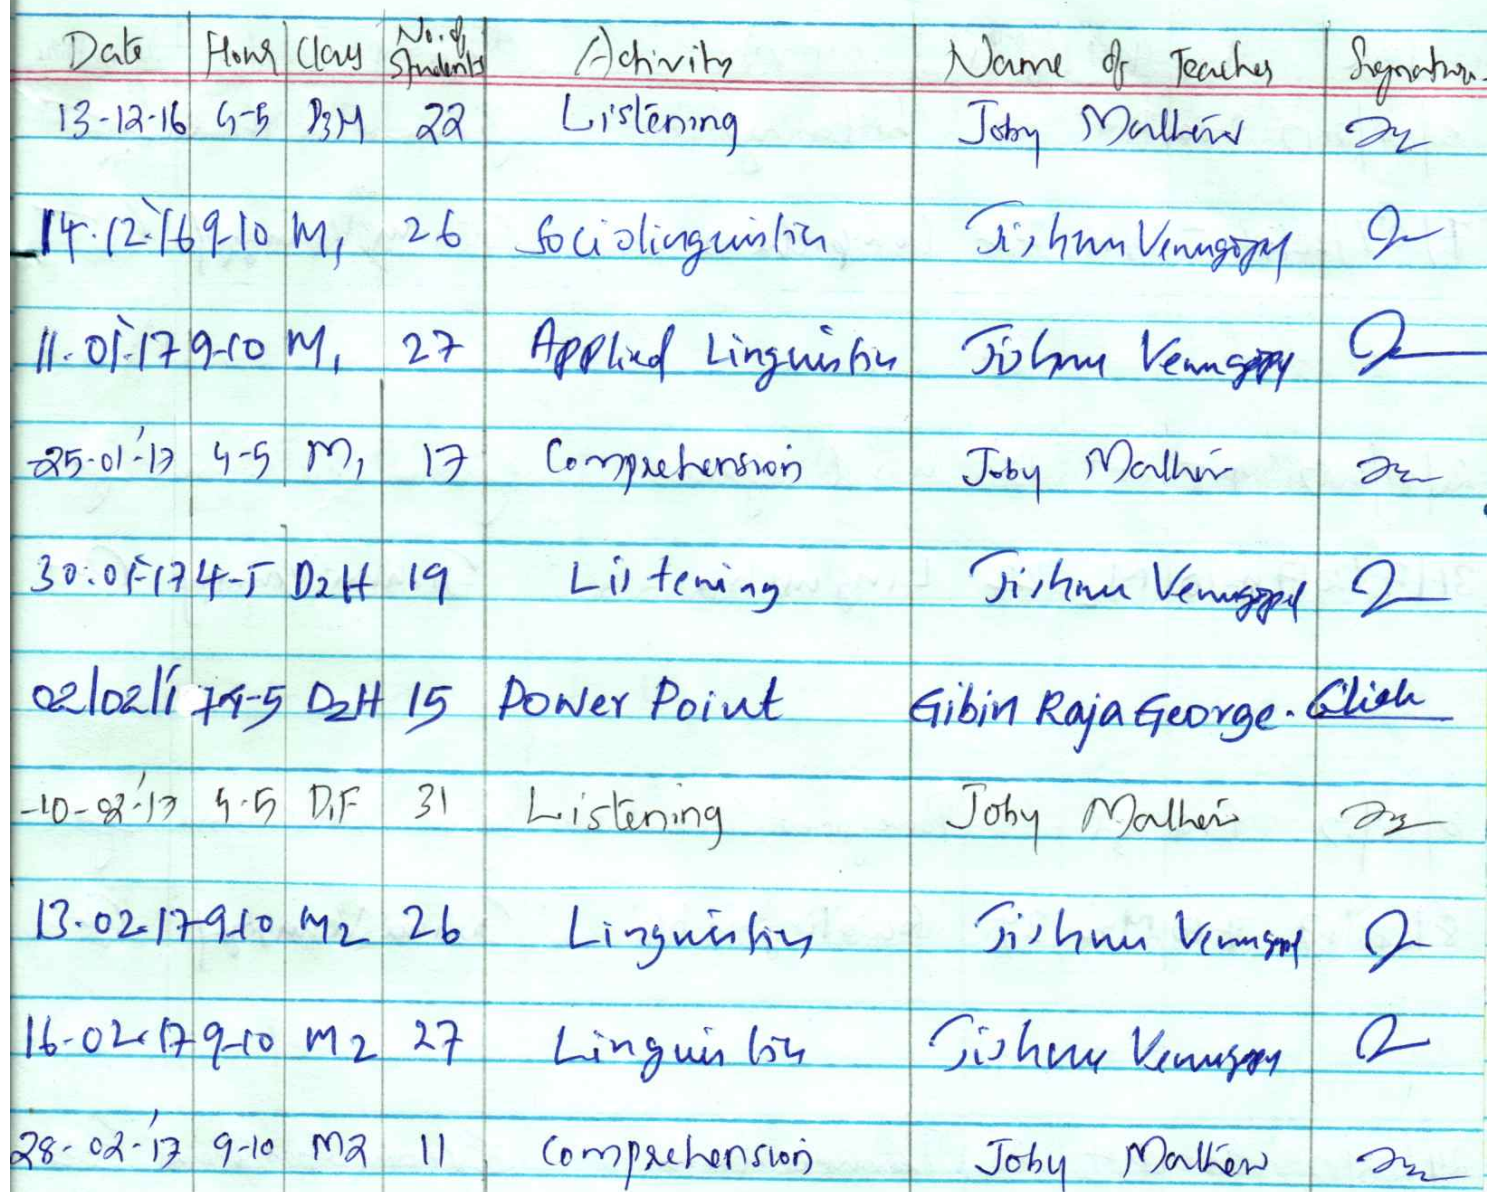 Date Hour Class No. of Students Activity Name of Teacher Signature
13-12-16 4-5 D3M 22 Listening Joby Mathew
14.12.16 9-10 M1 26 Sociolinguistics Jishnu Venugopal
11.01.17 9-10 M1 27 Applied Linguistics Jishnu Venugopal
25-01-'17 4-5 M1 17 Comprehension Joby Mathew
30.01.17 4-5 D2H 19 Listening Jishnu Venugopal
02/02/17 4-5 D2H 15 Power Point Gibin Raja George.
10-02-'17 4-5 D1F 31 Listening Joby Mathew
13.02.17 9-10 M2 26 Linguistics Jishnu Venugopal
16-02-17 9-10 M2 27 Linguistics Jishnu Venugopal
28-02-'17 9-10 M2 11 Comprehension Joby Mathew